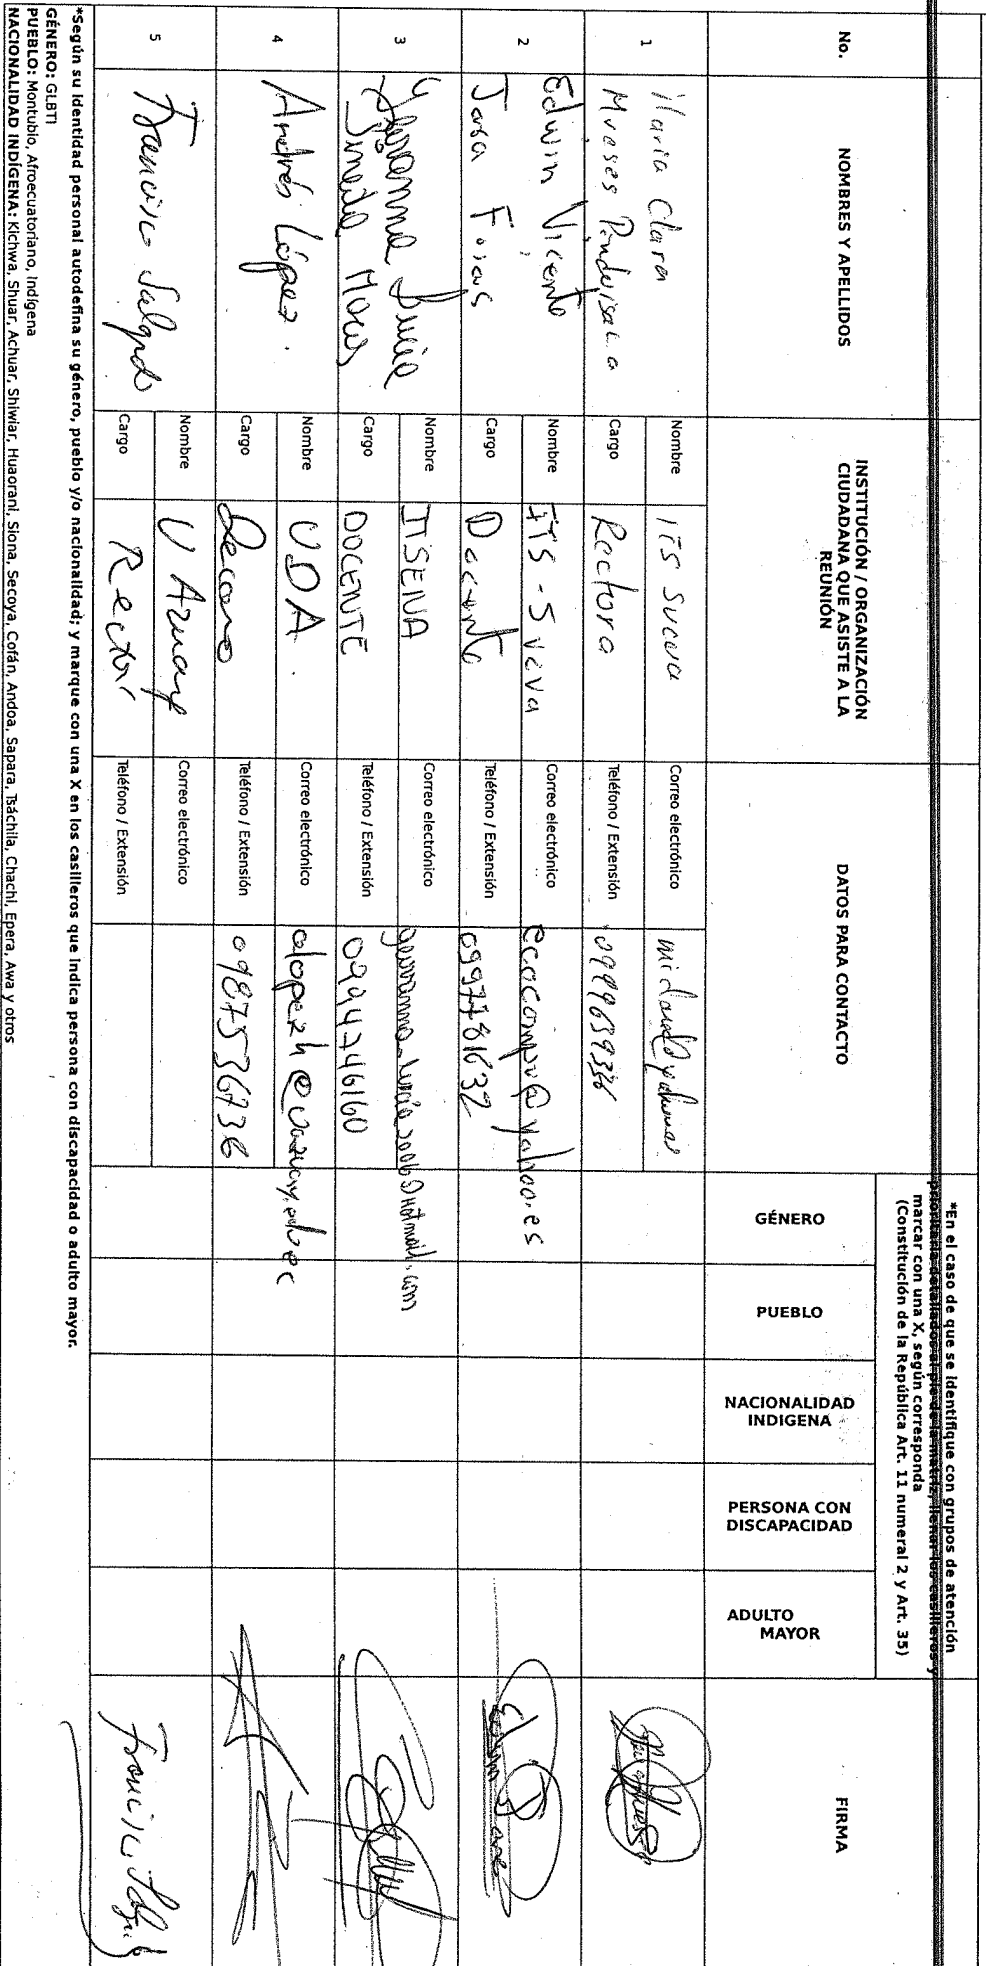 *En el caso de que se identifique con grupos de atención
prioritaria detallados al pie de la matriz, llenar los casilleros y
marcar con una X, según corresponda
(Constitución de la República Art. 11 numeral 2 y Art. 35)
No.
NOMBRES Y APELLIDOS
INSTITUCIÓN / ORGANIZACIÓN
CIUDADANA QUE ASISTE A LA
REUNIÓN
DATOS PARA CONTACTO
GÉNERO
PUEBLO
NACIONALIDAD
INDIGENA
PERSONA CON
DISCAPACIDAD
ADULTO
MAYOR
FIRMA
1
María Clara
Nombre
ITS Sucua
Correo electrónico
Cargo
Rectora
Teléfono / Extensión
2
Edwin Vicente
Nombre
ITS -
Correo electrónico
ecocompu@yahoo.es
Jara
Cargo
Docente
Teléfono / Extensión
0997781632
3
Nombre
Correo electrónico
Cargo
DOCENTE
Teléfono / Extensión
0994246160
4
Andrés López.
Nombre
UDA.
Correo electrónico
alopezh@uazuay.edu.ec
Cargo
Decano
Teléfono / Extensión
0987536736
5
Francisco Salgado
Nombre
U Azuay
Correo electrónico
Cargo
Rector
Teléfono / Extensión
*Según su identidad personal autodefina su género, pueblo y/o nacionalidad; y marque con una X en los casilleros que indica persona con discapacidad o adulto mayor.
GÉNERO: GLBTI
PUEBLO: Montubio, Afroecuatoriano, Indígena
NACIONALIDAD INDÍGENA: Kichwa, Shuar, Achuar, Shiwiar, Huaorani, Siona, Secoya, Cofán, Andoa, Sapara, Tsáchila, Chachi, Epera, Awa y otros